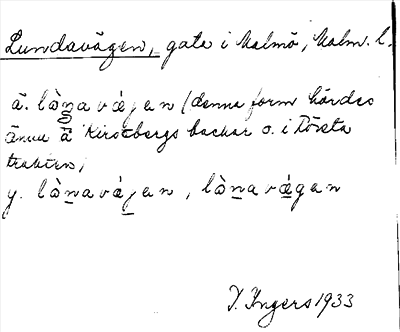 Lundavägen, gata i Malmö, Malm. l.
ä. lònavǽjan (denna form hördes
ännu å Kirsebergs backar o. i Rörsta
trakten,
y. lònavǽjan, lònavǽgan
I. Ingers 1933